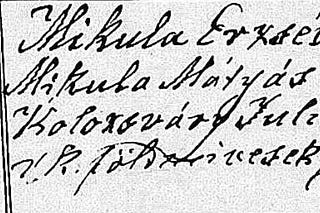 Mikula Erzsé
Mikula Mátyás
Kolozsvári Juli
r. k. földmivesek